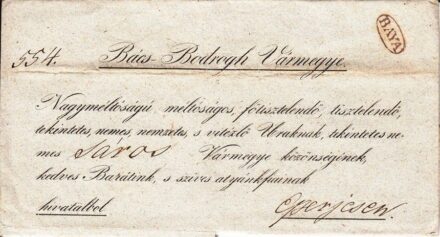 BAJA
554. Bács Bodrogh Vármegye
Nagyméltóságú méltóságos, főtisztelendő, tisztelendő,
tekintetes, nemes, nemzetes, s vitézlő Uraknák, tekintetes ne-
mes Sáros Vármegye közönségének,
kedves Barátink, s szives atyánkfiainak
hivatalból Eperjesen.